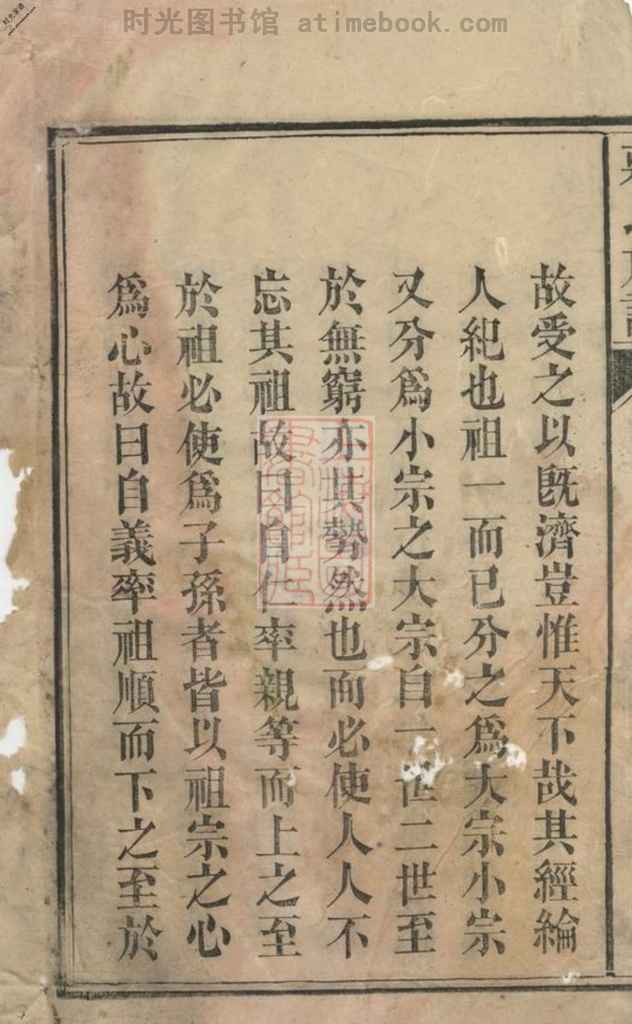 时光图书馆 atimebook.com
故受之以既濟豈惟天下哉其經綸
人紀也祖一而已分之爲大宗小宗
又分爲小宗之大宗自一世二世至
於無窮亦其勢然也而必使人人不
忘其祖故曰自仁率親等而上之至
於祖必使爲子孫者皆以祖宗之心
爲心故曰自義率祖順而下之至於